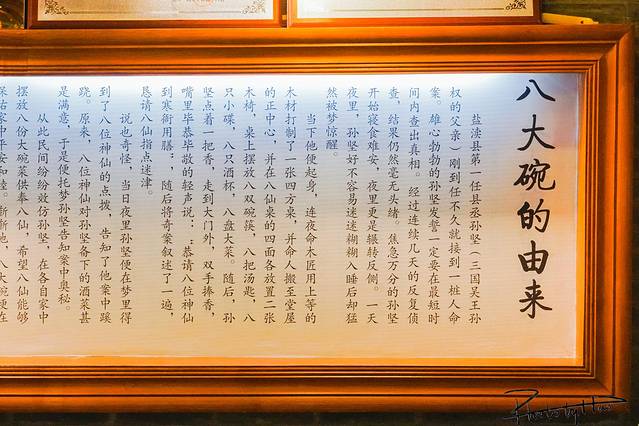 八大碗的由来
盐渎县第一任县丞孙坚（三国吴王孙
权的父亲）刚到任不久就接到一桩人命
案。雄心勃勃的孙坚发誓一定要在最短时
间内查出真相。经过连续几天的反复侦
查，结果仍然毫无头绪。焦急万分的孙坚
开始寝食难安，夜里更是辗转反侧。一天
夜里，孙坚好不容易迷迷糊糊入睡后却猛
然被梦惊醒。
当下他便起身，连夜命木匠用上等的
木材打制了一张四方桌，并命人搬至堂屋
的正中心，并在八仙桌的四面各放置二张
木椅，桌上摆放八双碗筷，八把汤匙，八
只小碟，八只酒杯，八盘大菜。随后，孙
坚点着一把香，走到大门外，双手捧香，
嘴里毕恭毕敬的轻声说：“恭请八位神仙
到寒衙用膳”，随后将奇案叙述了一遍，
恳请八仙指点迷津。
说也奇怪，当日夜里孙坚便在梦里得
到了八位神仙的点拨，告知了他案中蹊
跷。原来，八位神仙对孙坚备下的酒菜甚
是满意，于是便托梦孙坚告知案中奥秘。
从此民间纷纷效仿孙坚，在各自家中
摆放八份大碗菜供奉八仙，希望八仙能够
保佑家中平安和睦。渐渐地，八大碗便在
Photo by